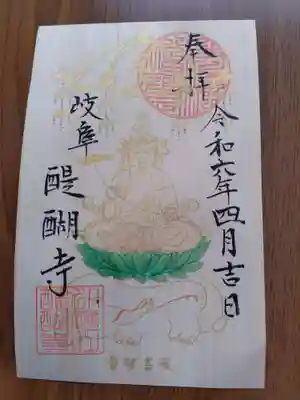 奉拝
令和六年四月吉日
岐阜
醍醐寺